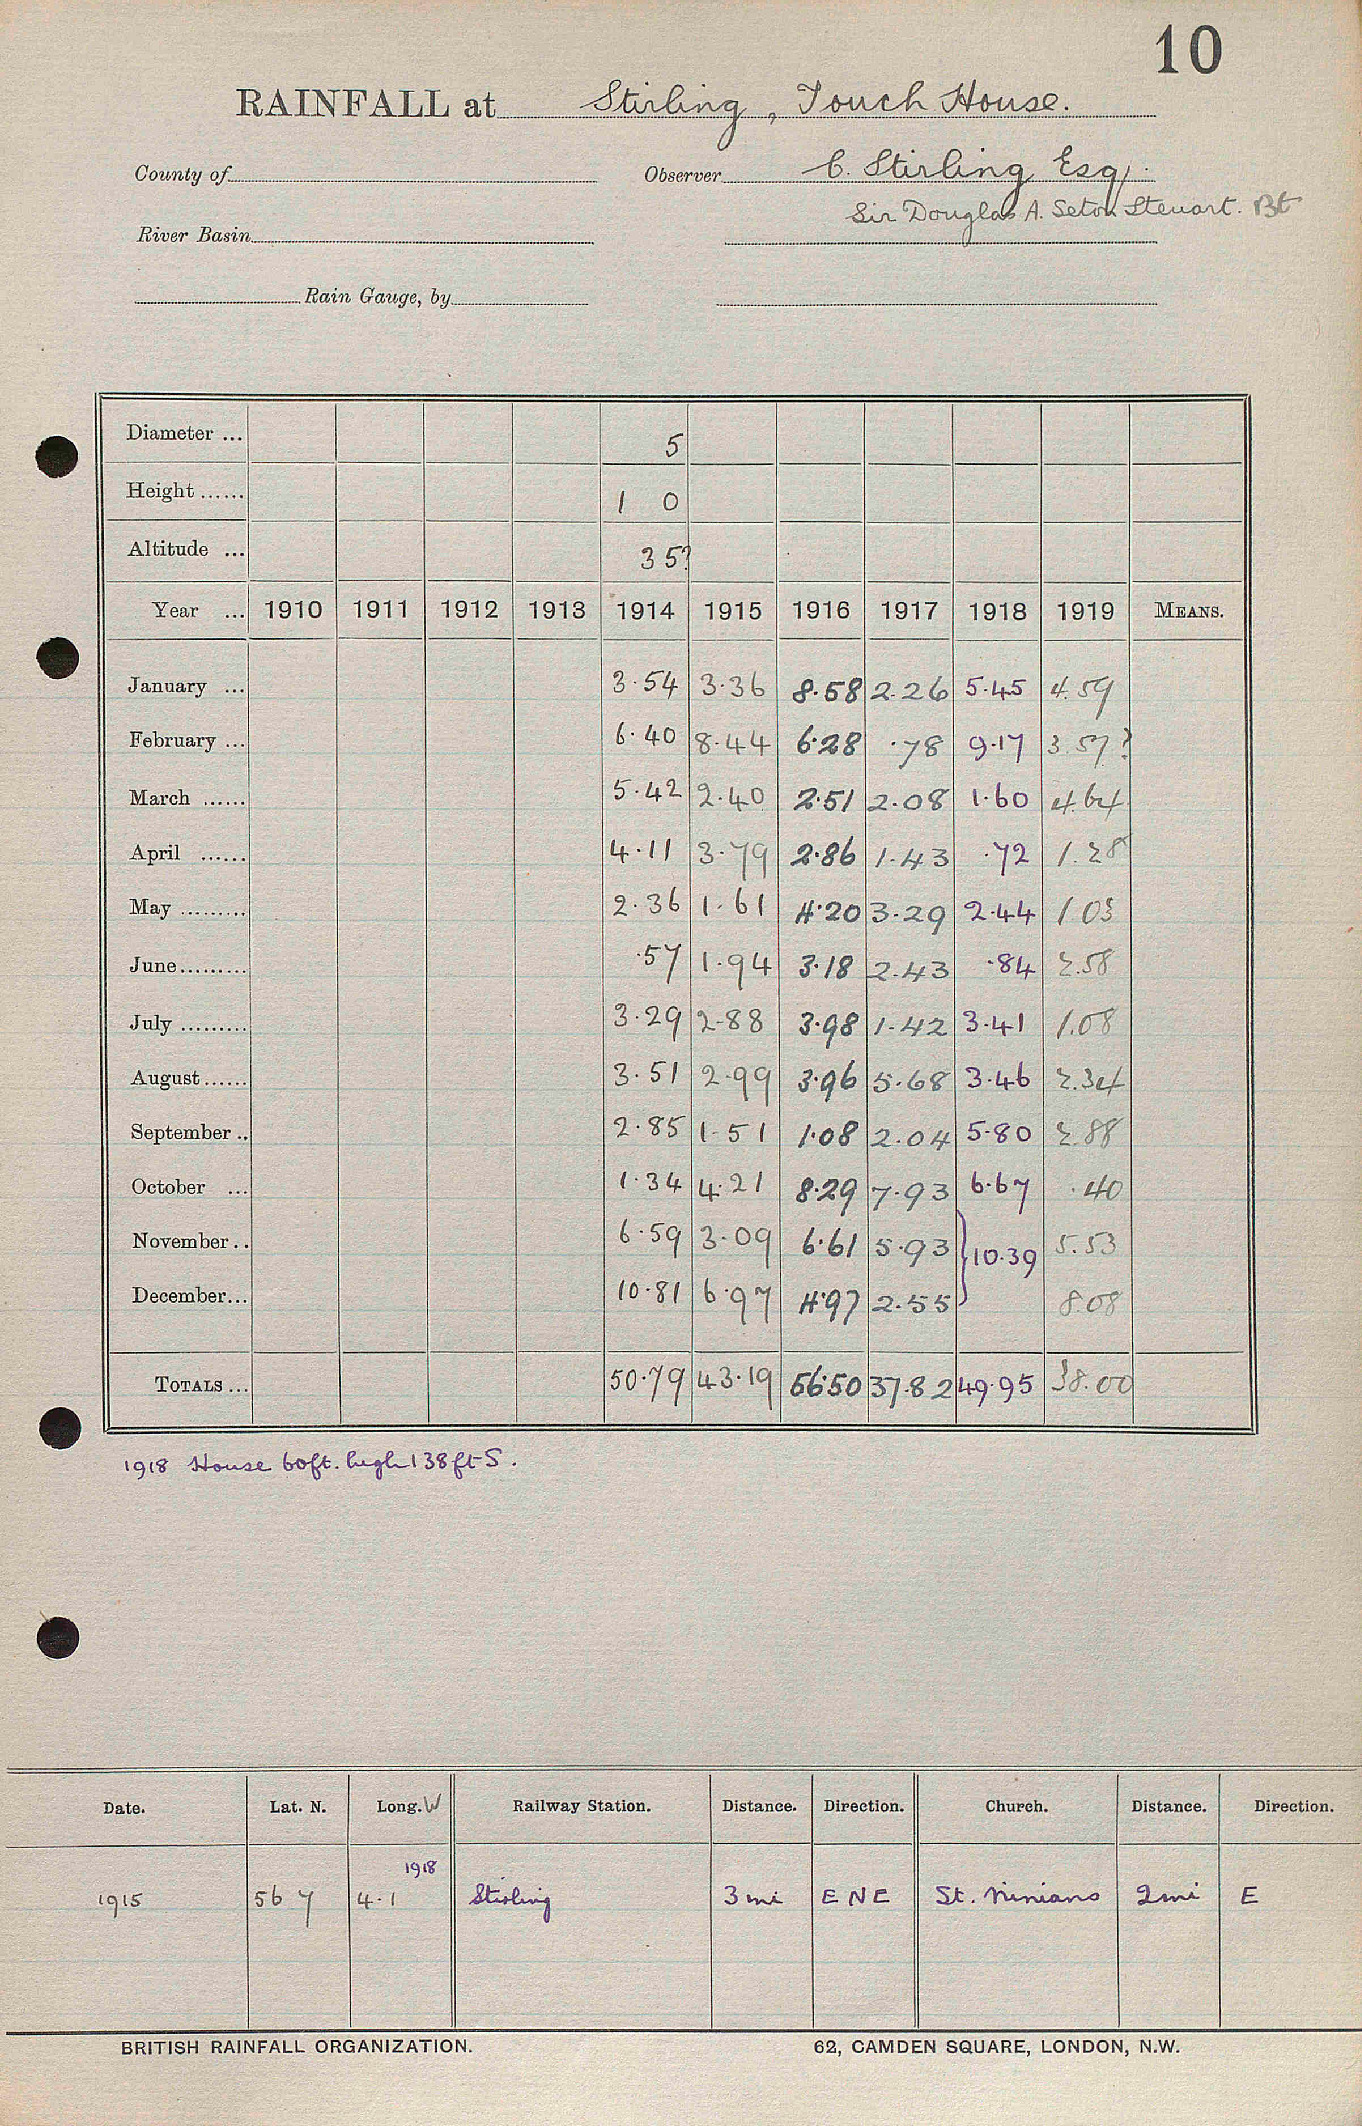 10
RAINFALL at Stirling, Touch House.
County of Observer C. Stirling Esq.
Sir Douglas A. Seton Steuart. Bt
River Basin
Rain Gauge, by
Diameter ... 5
Height ...... 1 0
Altitude ... 35?
Year ... 1910 1911 1912 1913 1914 1915 1916 1917 1918 1919 MEANS.
January ... 3.54 3.36 8.58 2.26 5.45 4.59
February ... 6.40 8.44 6.28 .78 9.17 3.57?
March ...... 5.42 2.40 2.51 2.08 1.60 4.64
April ...... 4.11 3.79 2.86 1.43 .72 1.28
May ......... 2.36 1.61 4.20 3.29 2.44 1 03
June......... .57 1.94 3.18 2.43 .84 2.58
July ......... 3.29 2.88 3.98 1.42 3.41 1.08
August...... 3.51 2.99 3.96 5.68 3.46 2.34
September .. 2.85 1.51 1.08 2.04 5.80 2.88
October ... 1.34 4.21 8.29 7.93 6.67 .40
November .. 6.59 3.09 6.61 5.93 } 10.39 5.53
December... 10.81 6.97 4.97 2.55 8.08
TOTALS ... 50.79 43.19 56.50 37.82 49.95 38.00
1918 House 60ft. high 138ft S.
Date. Lat. N. Long. W Railway Station. Distance. Direction. Church. Distance. Direction.
1918
1915 56 7 4.1 Stirling 3 mi E N E St. Ninians 2 mi E
BRITISH RAINFALL ORGANIZATION. 62, CAMDEN SQUARE, LONDON, N.W.